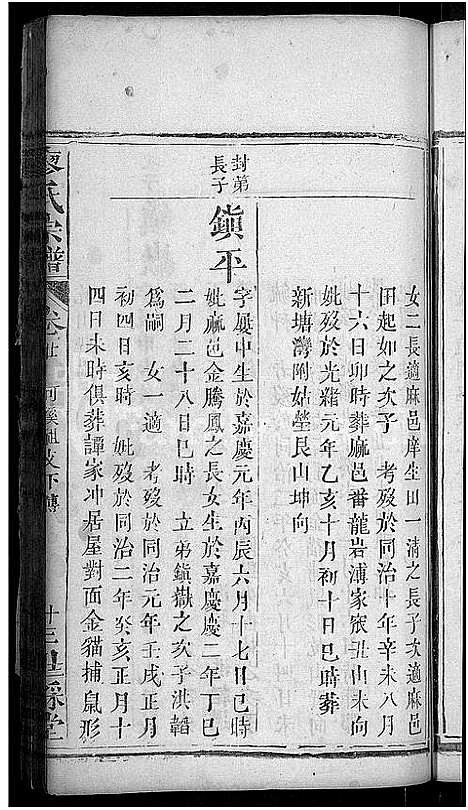 女二長適麻邑庠生田一清之長子次適麻邑
田起如之次子 考歿於同治十年辛未八月
十六日卯時葬麻邑番龍岩溥家㘵丑山未向
妣歿於光緒元年乙亥十月初十日巳時葬
新塘灣附姑塋艮山坤向
封弟
長子
鎮平
字慶中生於嘉慶元年丙辰六月十七日巳時
妣麻邑金騰鳳之長女生於嘉慶二年丁巳
二月二十八日巳時 立弟鎮嶽之次子洪韜
為嗣 女一適 考歿於同治元年壬戌正月
初四日亥時 妣歿於同治二年癸亥正月十
四日未時俱葬譚家冲居屋對面金貓捕鼠形
廖氏宗譜
卷廿 河溪祖文下傳
十三